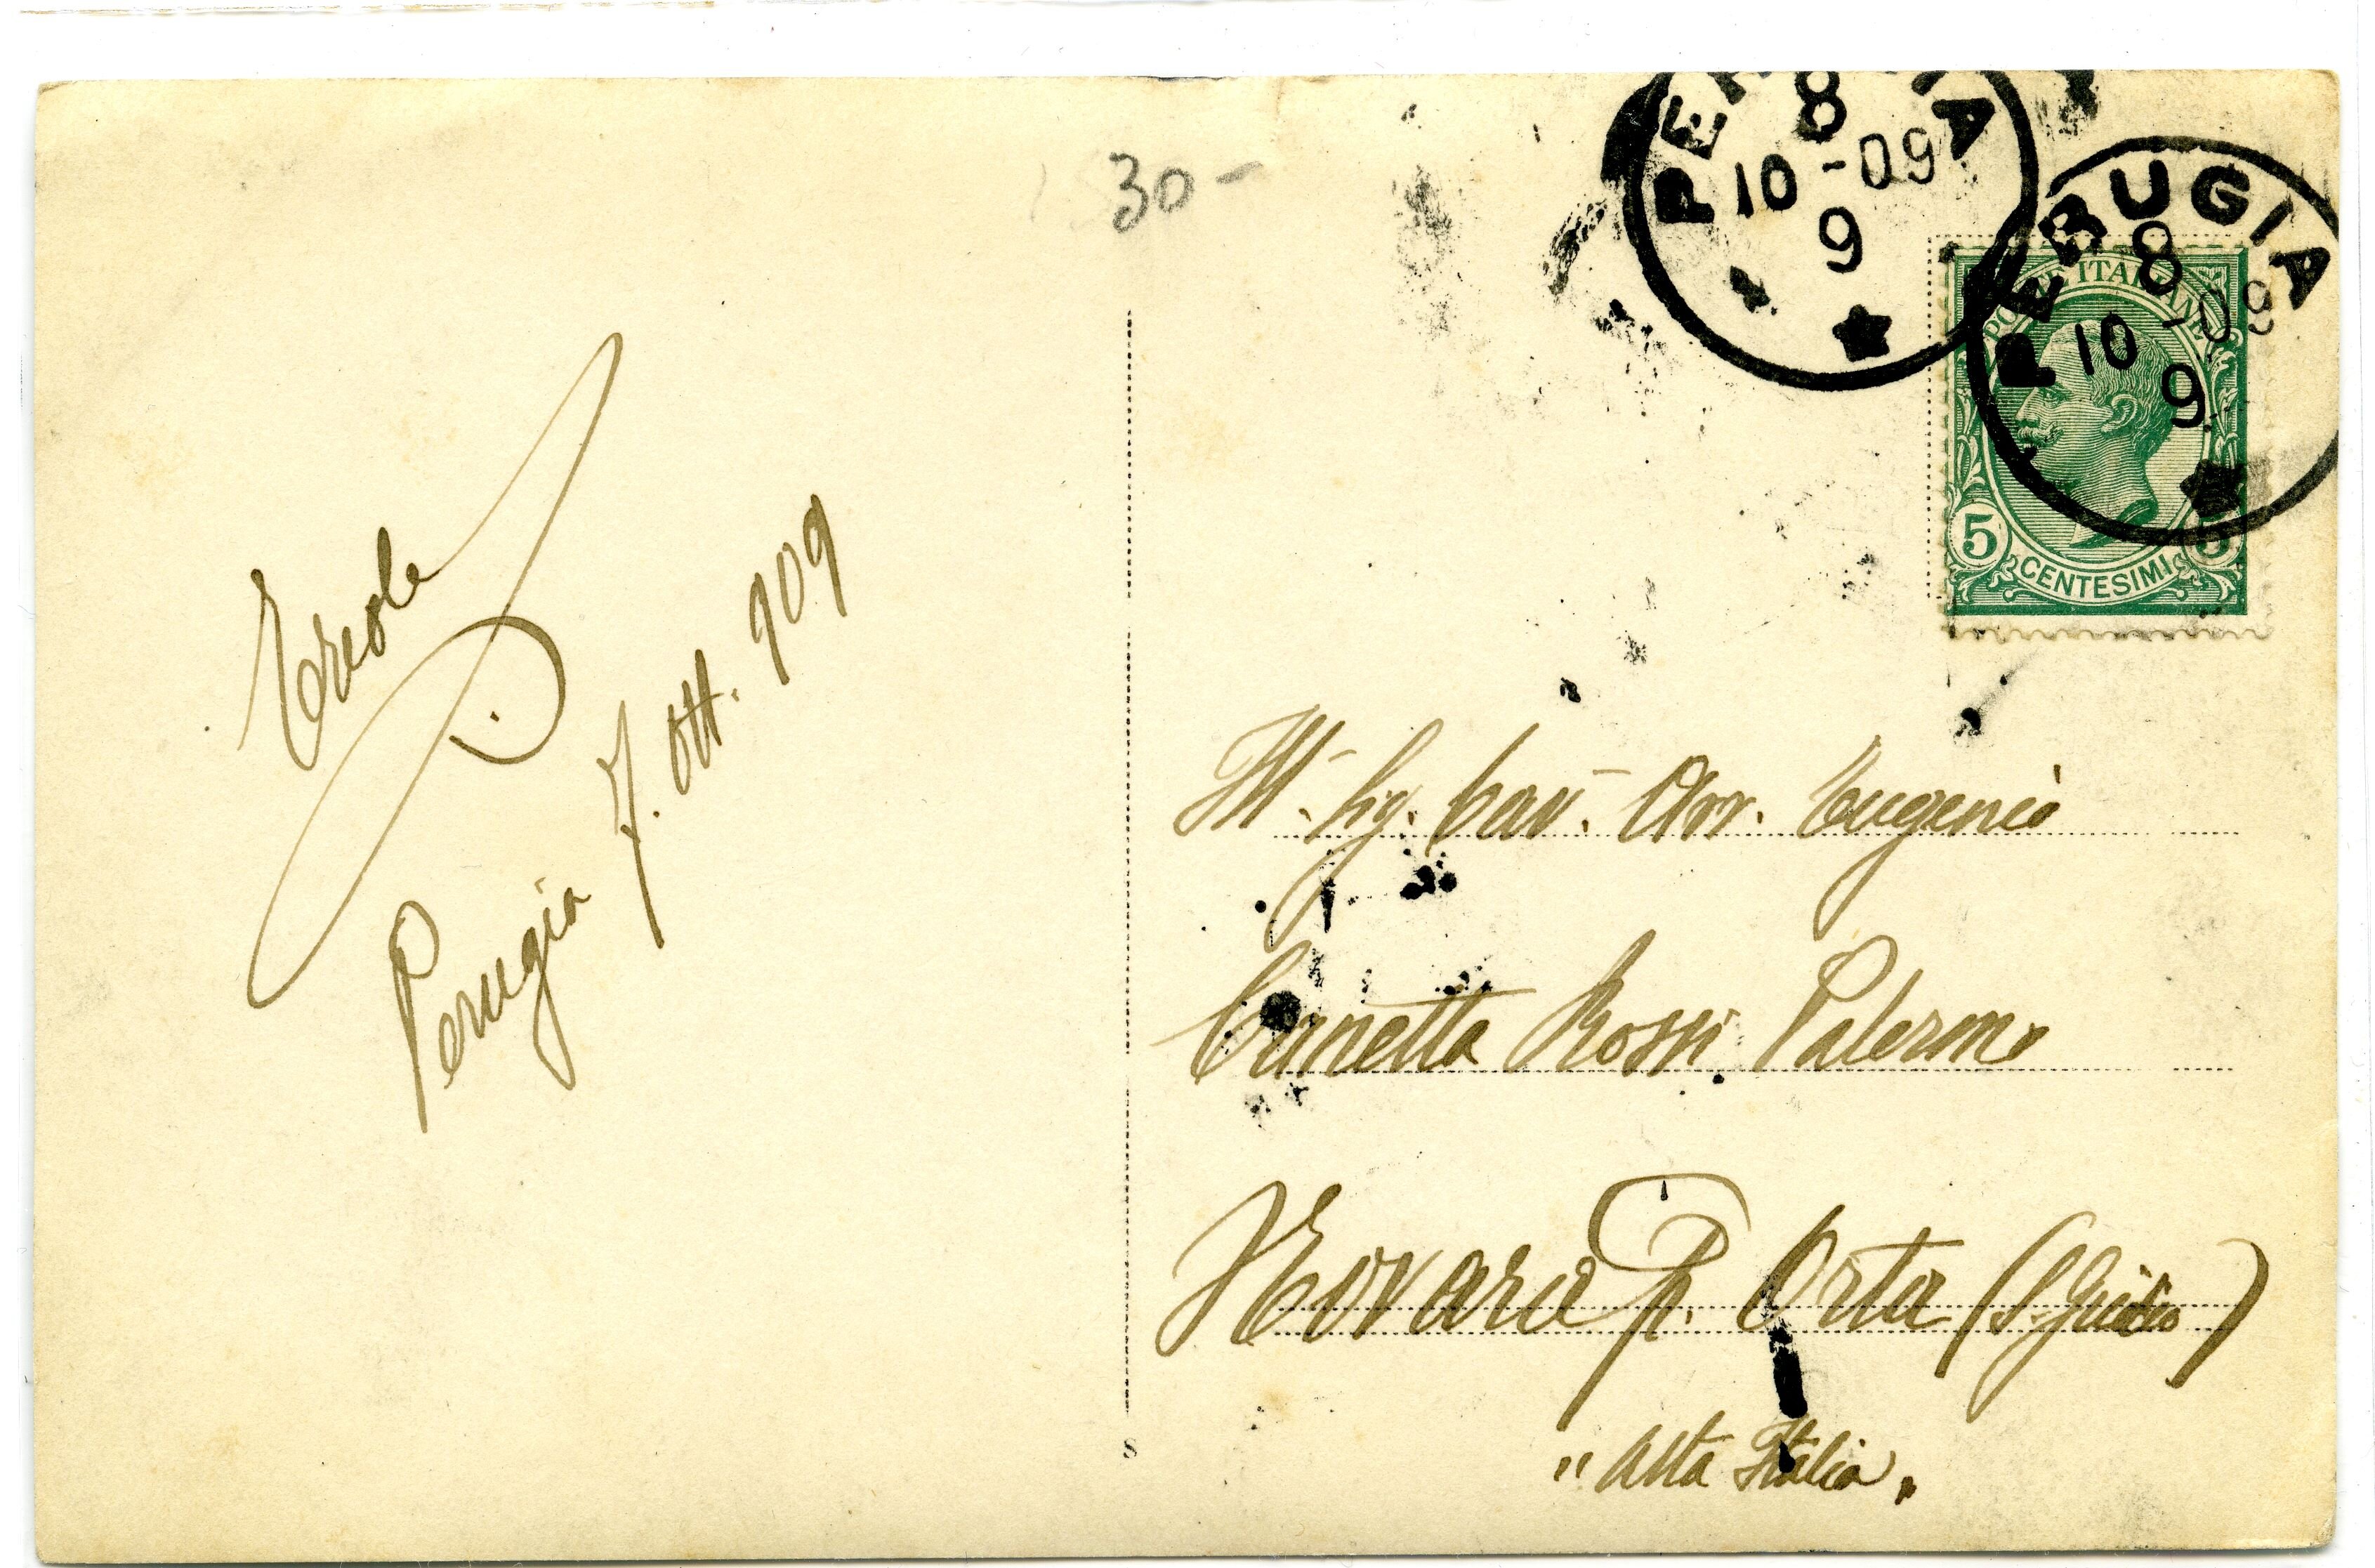 30-
PERUGIA
8
10-09
9
PERUGIA
8
10-09
9
POSTE ITALIANE
5 5
CENTESIMI
Ercole
Perugia 7. Ott. 909
Ill. Sig. Cav. Avv. Eugenio
Canetta Rossi Palermo
Novara p. Orta (S. Giulio)
"Alta Italia"
8